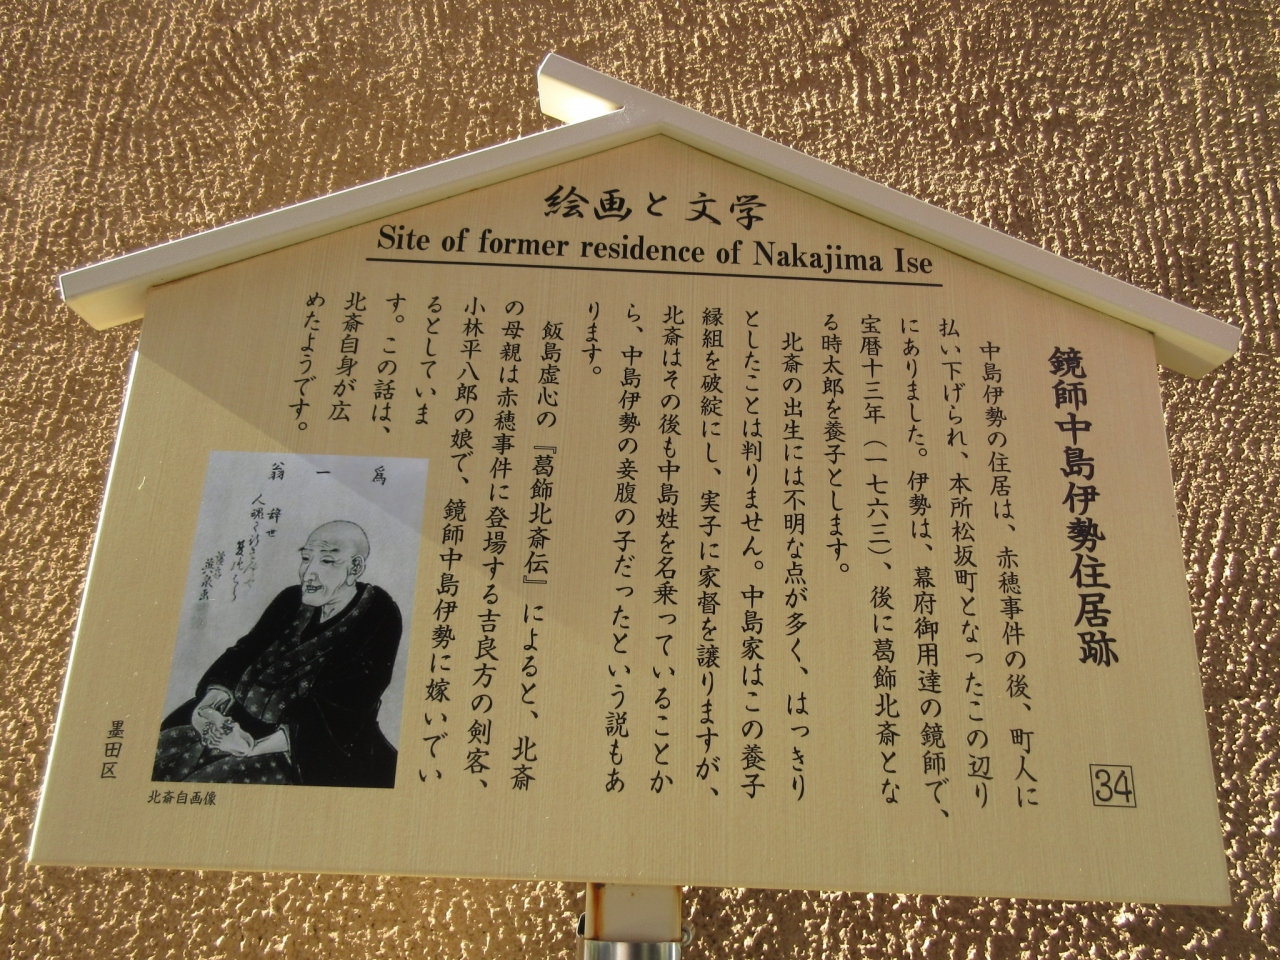 絵画と文学
Site of former residence of Nakajima Ise
鏡師中島伊勢住居跡
34
中島伊勢の住居は、赤穂事件の後、町人に
払い下げられ、本所松坂町となったこの辺り
にありました。伊勢は、幕府御用達の鏡師で、
宝暦十三年（一七六三）、後に葛飾北斎とな
る時太郎を養子とします。
北斎の出生には不明な点が多く、はっきり
としたことは判りません。中島家はこの養子
縁組を破綻にし、実子に家督を譲りますが、
北斎はその後も中島姓を名乗っていることか
ら、中島伊勢の妾腹の子だったという説もあ
ります。
飯島虚心の『葛飾北斎伝』によると、北斎
の母親は赤穂事件に登場する吉良方の剣客、
小林平八郎の娘で、鏡師中島伊勢に嫁いでい
るとしていま
す。この話は、
北斎自身が広
めたようです。
為一翁
辞世
北斎自画像
墨田区